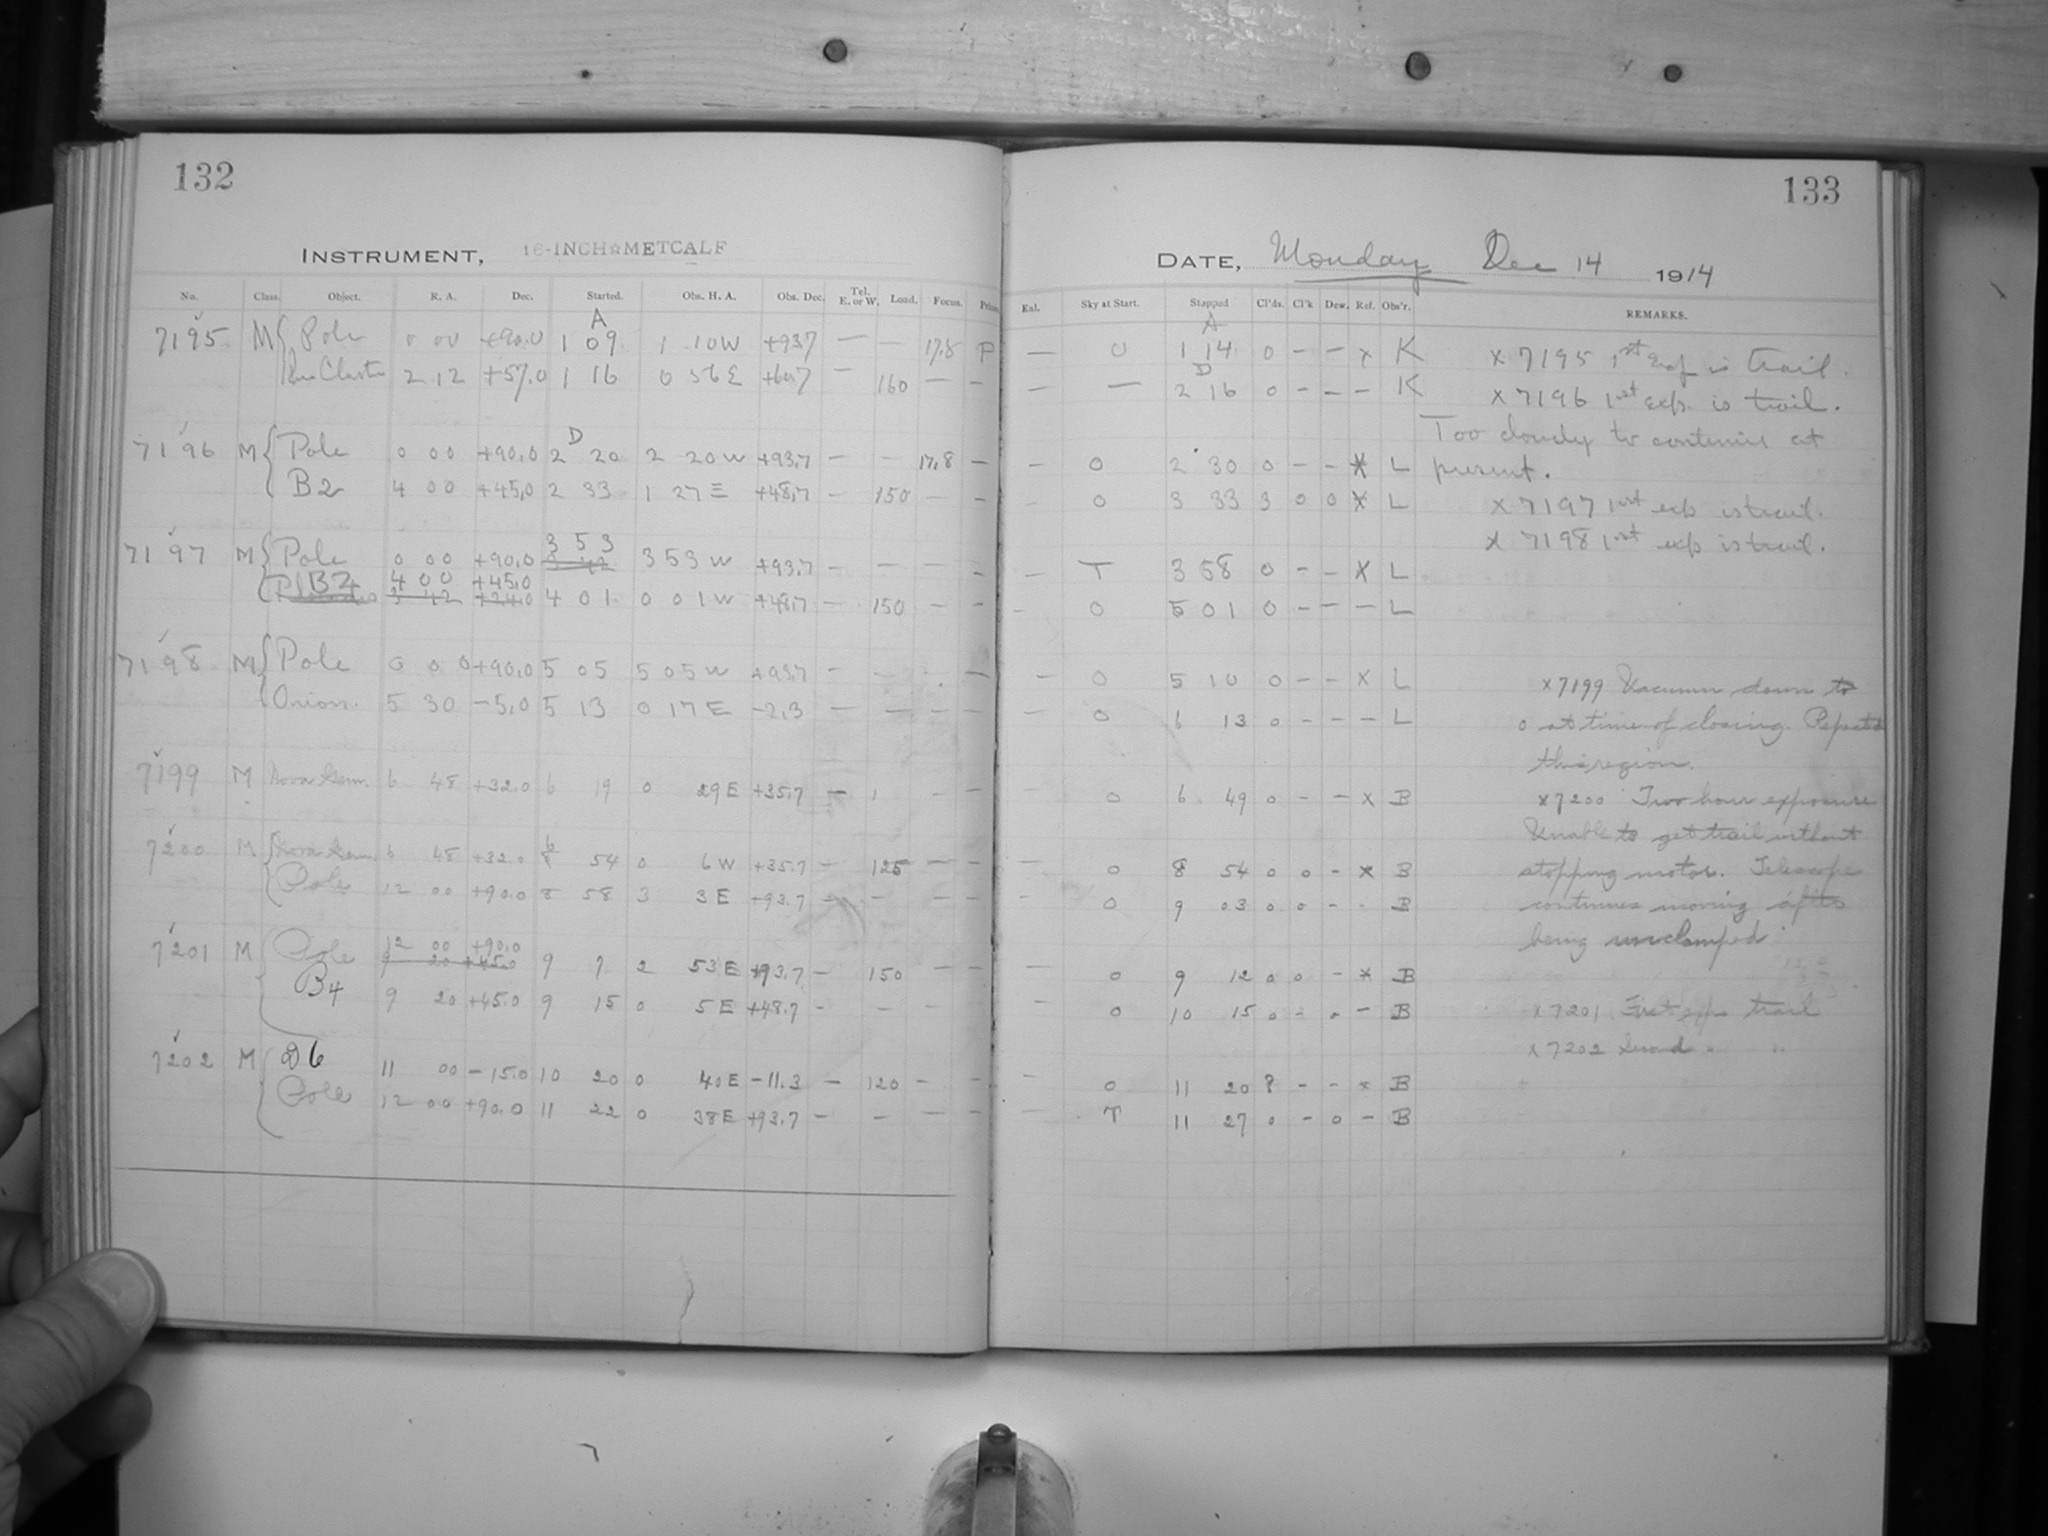 132
INSTRUMENT, 16-INCH☆METCALF
No. Class. Object. R. A. Dec. Started. Obs. H. A. Obs. Dec. Tel. E. or W. Load. Focus. Prism
7195 M Pole 0 00 +90.0 A 1 09 1 10W +93.7 — — 17.8 P
2 12 +57.0 1 16 0 56E +60.7 — 160 — —
7196 M Pole 0 00 +90.0 D 2 20 2 20W +93.7 — — 17.8 —
B2 4 00 +45.0 2 33 1 27E +48.7 — 150 — —
7197 M Pole 0 00 +90.0 3 53 3 53W +93.7 — — — —
B2 4 00 +45.0
3 42 +24.0 4 01 0 01W +48.7 — 150 — —
7198 M Pole 0 00 +90.0 5 05 5 05W +93.7 — — — —
Orion. 5 30 -5.0 5 13 0 17E -2.3 — — — —
7199 M Nova Gem. 6 48 +32.0 6 19 0 29E +35.7 — — —
7200 M Nova Gem. 6 48 +32.0 6 54 0 6W +35.7 — 125 — —
Pole 12 00 +90.0 8 58 3 3E +93.7 — — — —
7201 M Pole 12 00 +90.0
9 20 +45.0 9 7 2 53E +93.7 — 150 — —
B4 9 20 +45.0 9 15 0 5E +48.7 — — — —
7202 M D6 11 00 -15.0 10 20 0 40E -11.3 — 120 — —
Pole 12 00 +90.0 11 22 0 38E +93.7 — — — —
133
DATE, Monday Dec 14 1914
Exl. Sky at Start. Stopped Cl'ds. Cl'k Dew. Ref. Obs'r. REMARKS.
— 0 A 1 14 0 — — x K x 7195 1st Exp is trail.
— — D 2 16 0 — — — K x 7196 1st exp. is trail.
Too cloudy to continue at
— 0 2 30 0 — — x L present.
— 0 3 33 3 0 0 x L x 7197 1st exp is trail.
x 7198 1st exp is trail.
— T 3 58 0 — — x L
— 0 5 01 0 — — — L
— 0 5 10 0 — — x L x7199 Vacuum down to
— 0 6 13 0 — — — L 0 at time of closing. Repeated
this region.
— 0 6 49 0 — — x B x7200 Two hour exposure
Unable to get trail without
— 0 8 54 0 0 — x B stopping motor. Telescope
— 0 9 03 0 0 — B continues moving after
being unclamped.
— 0 9 12 0 0 — x B
— 0 10 15 0 — — B x7201 First exp trail
x7202 Second " "
— 0 11 20 ? — — x B
— T 11 27 0 — 0 — B